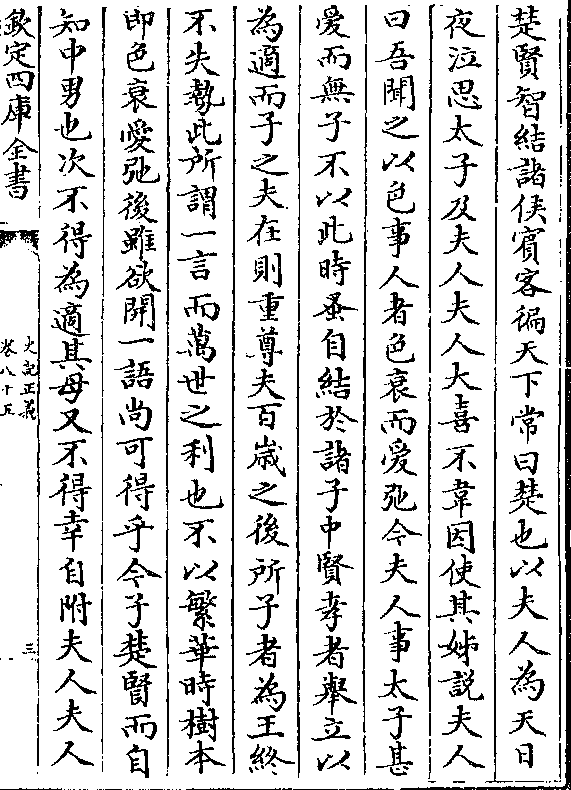 楚賢智結諸侯賓客徧天下常曰楚也以夫人為天日
夜泣思太子及夫人夫人大喜不韋因使其姊說夫人
曰吾聞之以色事人者色衰而愛弛今夫人事太子甚
愛而無子不以此時蚤自結於諸子中賢孝者舉立以
為適而子之夫在則重尊夫百嵗之後所子者為王終
不失勢此所謂一言而萬世之利也不以繁華時樹本
即色衰愛弛後雖欲開一語尚可得乎今子楚賢而自
知中男也次不得為適其母又不得幸自附夫人夫人
欽定四庫全書
史記正義
卷八十五
三